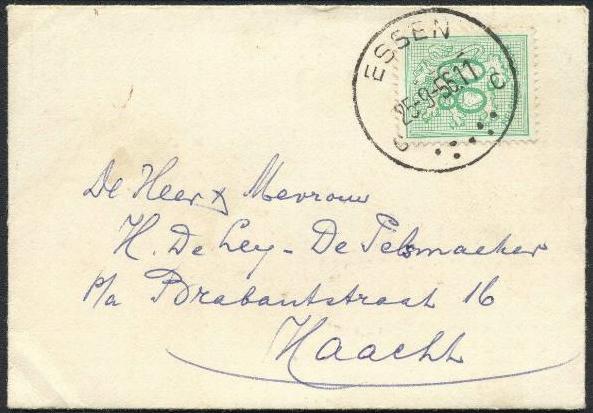 ESSEN
25-9-56.11
C C
80
De Heer & Mevrouw
H. De Ley - De Pelsmaeker
p/a Brabantstraat 16
Haacht